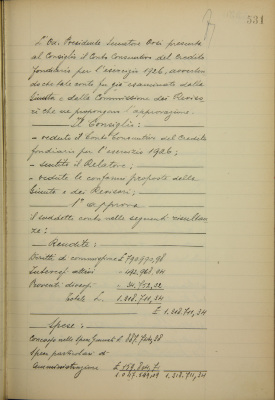 531
L'On. Presidente Senatore Rosi presenta
al Consiglio il Conto Consuntivo del Credito
fondiario per l'esercizio 1926, avverten
do che tale conto fu già esaminato dalla
Giunta e dalla Commissione dei Reviso
ri che ne propongono l'approvazione.
Il Consiglio:
- veduto il Conto Consuntivo del Credito
fondiario per l'esercizio 1926;
- sentito il Relatore;
- vedute le conformi proposte della
Giunta e dei Revisori;
l'approva
il suddetto conto nelle seguenti risultan
ze:
Rendite:
Diritti di commissione £ 790.990,98
Interessi attivi
Proventi diversi
Totale L. 1.268.711,34
£ 1.268.711,34
Spese:
Concorso nelle Spese Generali £ 887.744,98
Spese particolari di
amministrazione
1.268.711,34